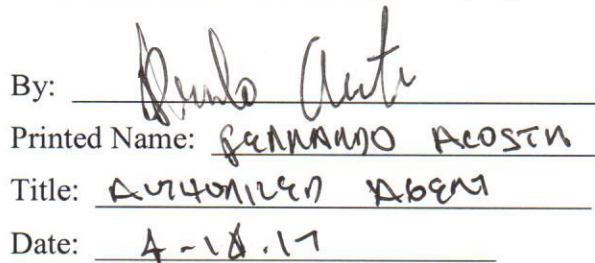 By:
Printed Name: FERNANDO ACOSTA
Title: AUTHORIZED AGENT
Date: